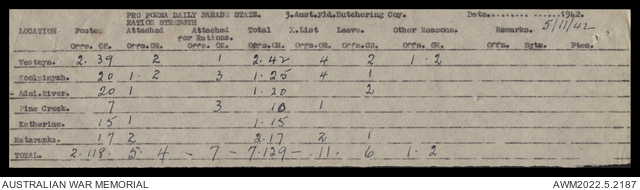 PRO FORMA DAILY PARADE STATE. 3.Aust.Fld.Butchering Coy. Date.............1942.
5/11/42
RATION STRENGTH
LOCATION Posted Attached Attached for Rations. Total X.List Leave. Other Reasons. Remarks.
Offs. OR. Offs.OR. Offs.OR. Offs.OR. Offs.OR. Offs.OR. Offs.OR. Offs. Sgts. Ptes.
Vesteys. 2. 39 2 1 2. 42 4 2 1 - 2
Koolpinyah. 20 1 - 2 3 1 - 25 4 1
Adel.River. 20 1 1 - 20 2
Pine Creek. 7 3 10 1
Katherine. 15 1 1 - 15
Mataranka. 17 2 2. 17 2 1
TOTAL. 2. 118. 5 . 4 - 7 - 7. 129 - . 11 . 6 1 - 2
AUSTRALIAN WAR MEMORIAL AWM2022.5.2187